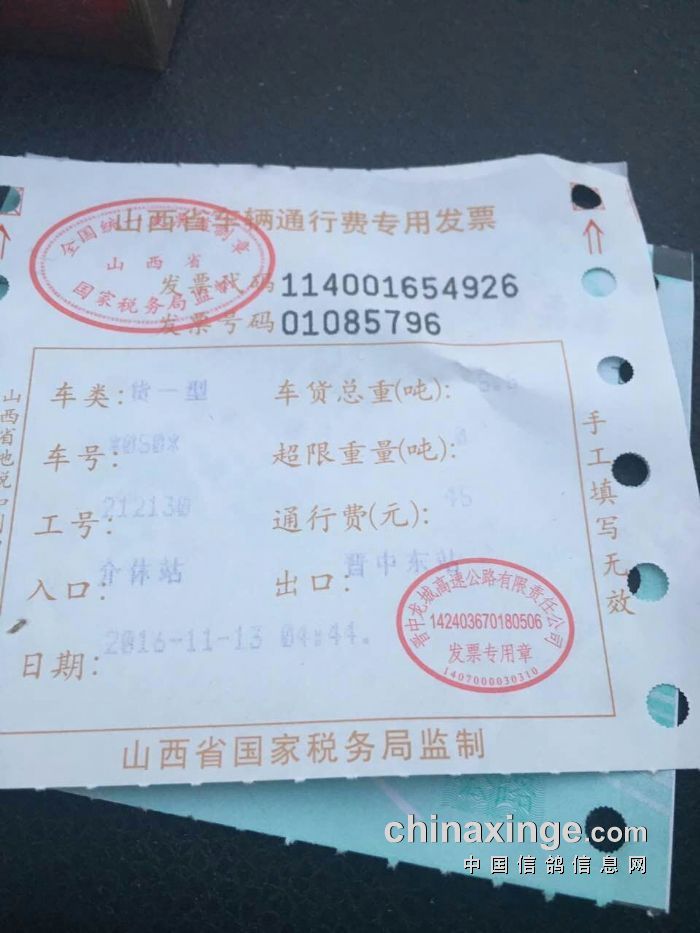 山西省车辆通行费专用发票
全国统一发票监制章
山西省
国家税务局监制
发票代码 114001654926
发票号码 01085796
车类: 货一型
车货总重(吨):
车号: *050*
超限重量(吨): 0
工号: 212130
通行费(元): 45
入口: 介休站
出口: 晋中东站
日期: 2016-11-13 04:44.
晋中龙城高速公路有限责任公司
142403670180506
发票专用章
1407000030310
手工填写无效
山西省国家税务局监制
chinaxinge.com
中国信鸽信息网